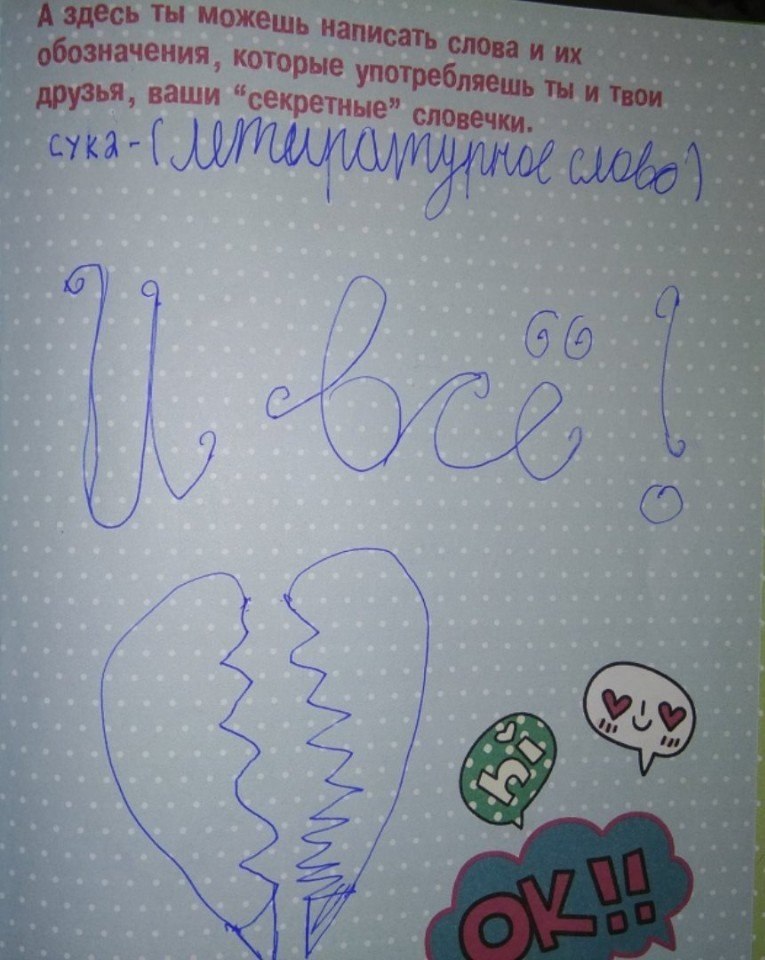 А здесь ты можешь написать слова и их
обозначения, которые употребляешь ты и твои
друзья, ваши “секретные” словечки.
сука-(летиратурное слово)
И всё!
hi
OK!!